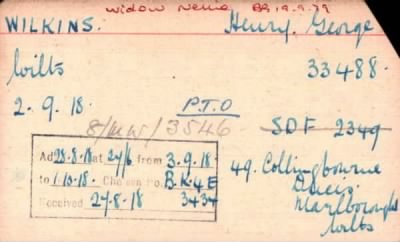 Widow Nellie BQ 19.9.79
WILKINS. Henry George
Wilts 33488.
2.9.18. P.T.O
8/MW/3546 SDF 2349
Ad 28.8.18 at 27/6 from 3.9.18.
to 1.10.18. Cheque No. B.K.4E
Received 27.8.18 3434
49. Collingbourne
Ducis.
Marlborough
Wilts